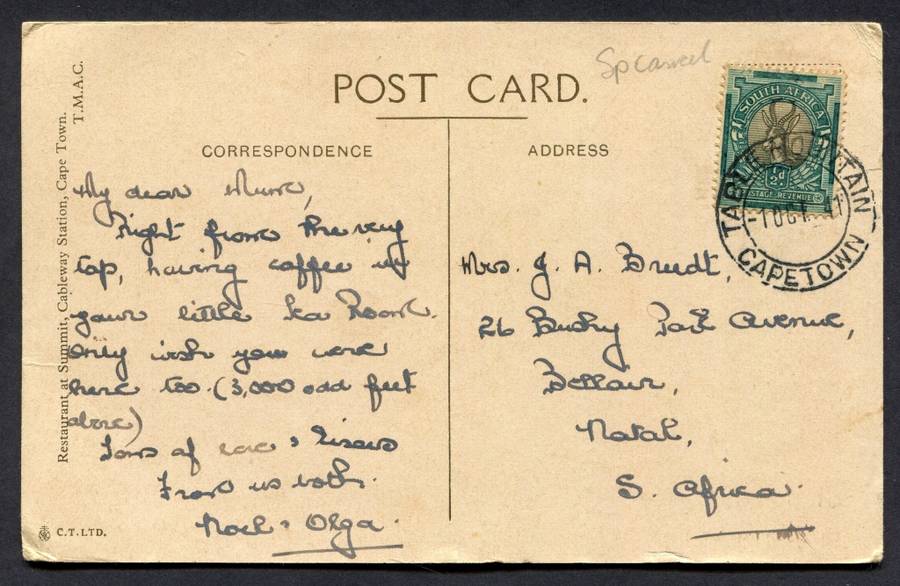 Sp cancel
POST CARD.
CORRESPONDENCE
ADDRESS
My dear Mum,
Right from the very
top, having coffee in
your little Tea Room.
Only wish you were
here too. (3,000 odd feet
above)
Tons of love & kisses
From us both.
Noel & Olga.
Mrs. J. A. Bredt,
26 Bushy Park Avenue,
Bellair,
Natal,
S. Africa.
SOUTH AFRICA
½d
POSTAGE REVENUE
TABLE MOUNTAIN
-1 OCT 47
CAPETOWN
Restaurant at Summit, Cableway Station, Cape Town.
T.M.A.C.
C.T. LTD.